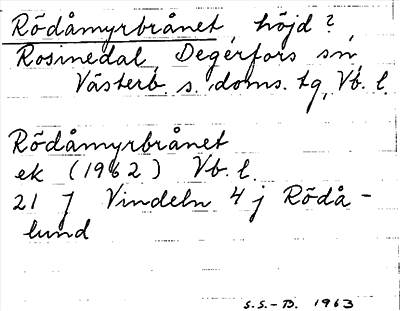 Rödåmyrbrånet, höjd?,
Rosinedal, Degerfors sn,
Västerb. s. doms. tg, Vb. l.
Rödåmyrbrånet
ek (1962) Vb. l.
21 J Vindeln 4 j Rödå-
lund
S.S.-B. 1963